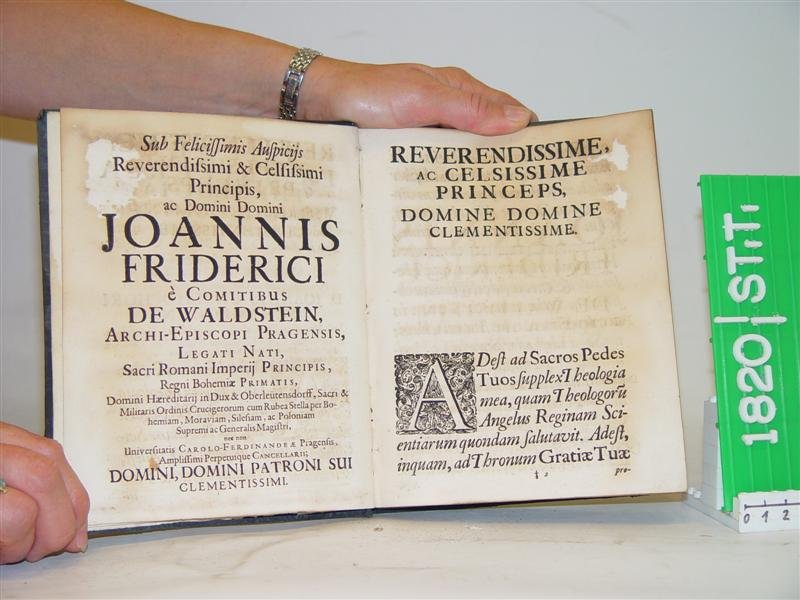 Sub Felicissimis Auspicijs
Reverendissimi & Celsissimi
Principis,
ac Domini Domini
JOANNIS
FRIDERICI
è Comitibus
DE WALDSTEIN,
Archi-Episcopi Pragensis,
Legati Nati,
Sacri Romani Imperij Principis,
Regni Bohemiæ Primatis,
Domini Hæreditarij in Dux & Oberleütensdorff, Sacri &
Militaris Ordinis Crucigerorum cum Rubea Stella per Bo-
hemiam, Moraviam, Silesiam, ac Poloniam
Supremi ac Generalis Magistri,
nec non
Universitatis Carolo-Ferdinandeæ Pragensis,
Amplissimi Perpetuique Cancellarii;
DOMINI, DOMINI PATRONI SUI
CLEMENTISSIMI.
REVERENDISSIME,
AC CELSISSIME
PRINCEPS,
DOMINE DOMINE
CLEMENTISSIME.
ADest ad Sacros Pedes
Tuos supplex Theologia
mea, quam Theologorũ
Angelus Reginam Sci-
entiarum quondam salutavit. Adest,
inquam, ad Thronum Gratiæ Tuæ
pro-
1820 ST.T.
0 1 2